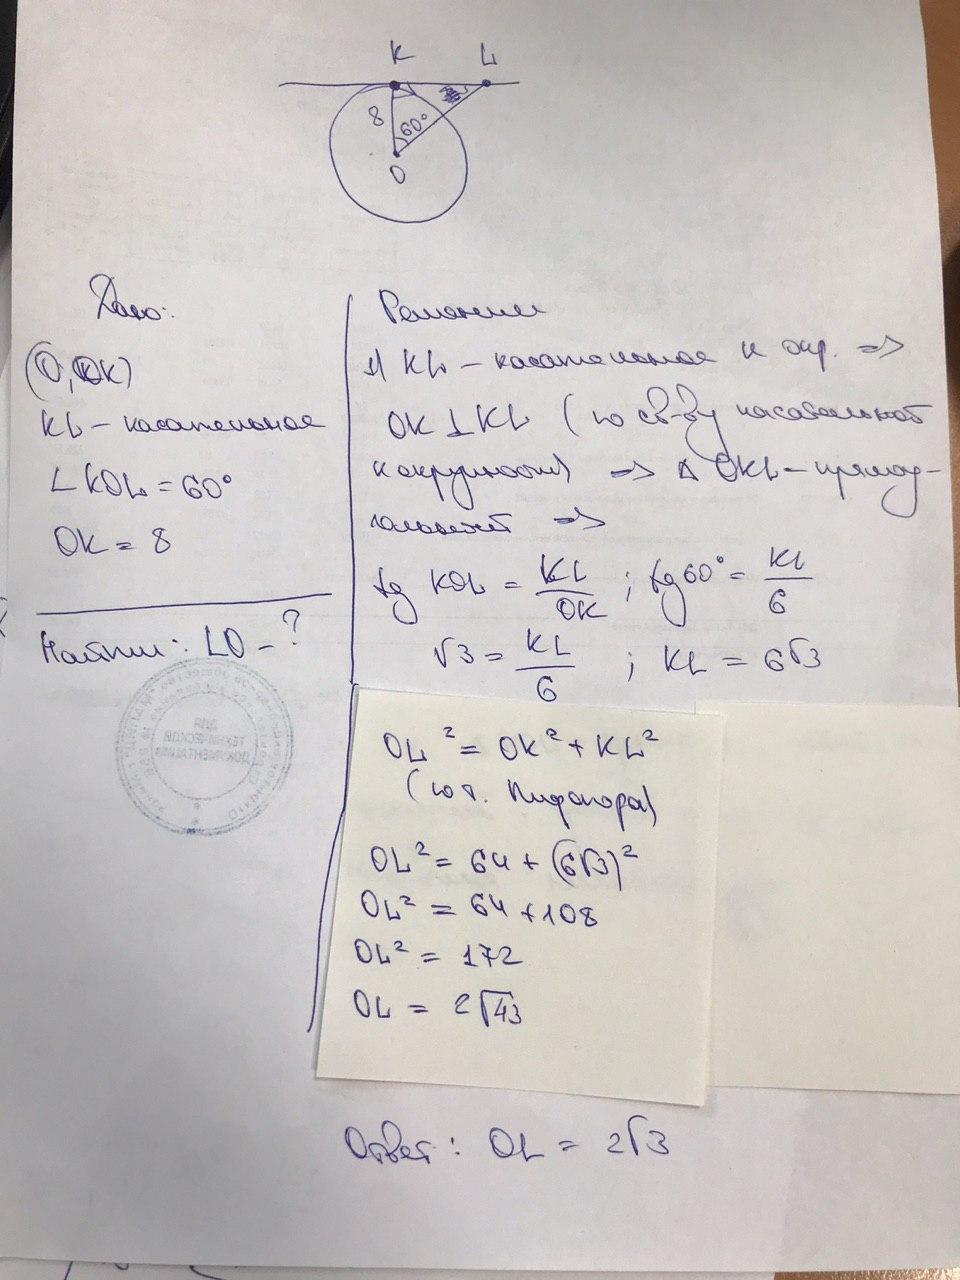 K L
8 60°
O
Дано:
(O, OK)
KL – касательная
∠KOL = 60°
OK = 8
Найти: LO – ?
Решение
1) KL – касательная к окр. =>
OK ⊥ KL (по св-ву касательной
к окружности) => Δ OKL – прямоу-
гольный =>
tg KOL = KL/OK ; tg 60° = KL/6
√3 = KL/6 ; KL = 6√3
OL² = OK² + KL²
(по т. Пифагора)
OL² = 64 + (6√3)²
OL² = 64 + 108
OL² = 172
OL = 2√43
Ответ: OL = 2√3
ДЛЯ
ТЕХНИЧЕСКОЙ
ДОКУМЕНТАЦИИ